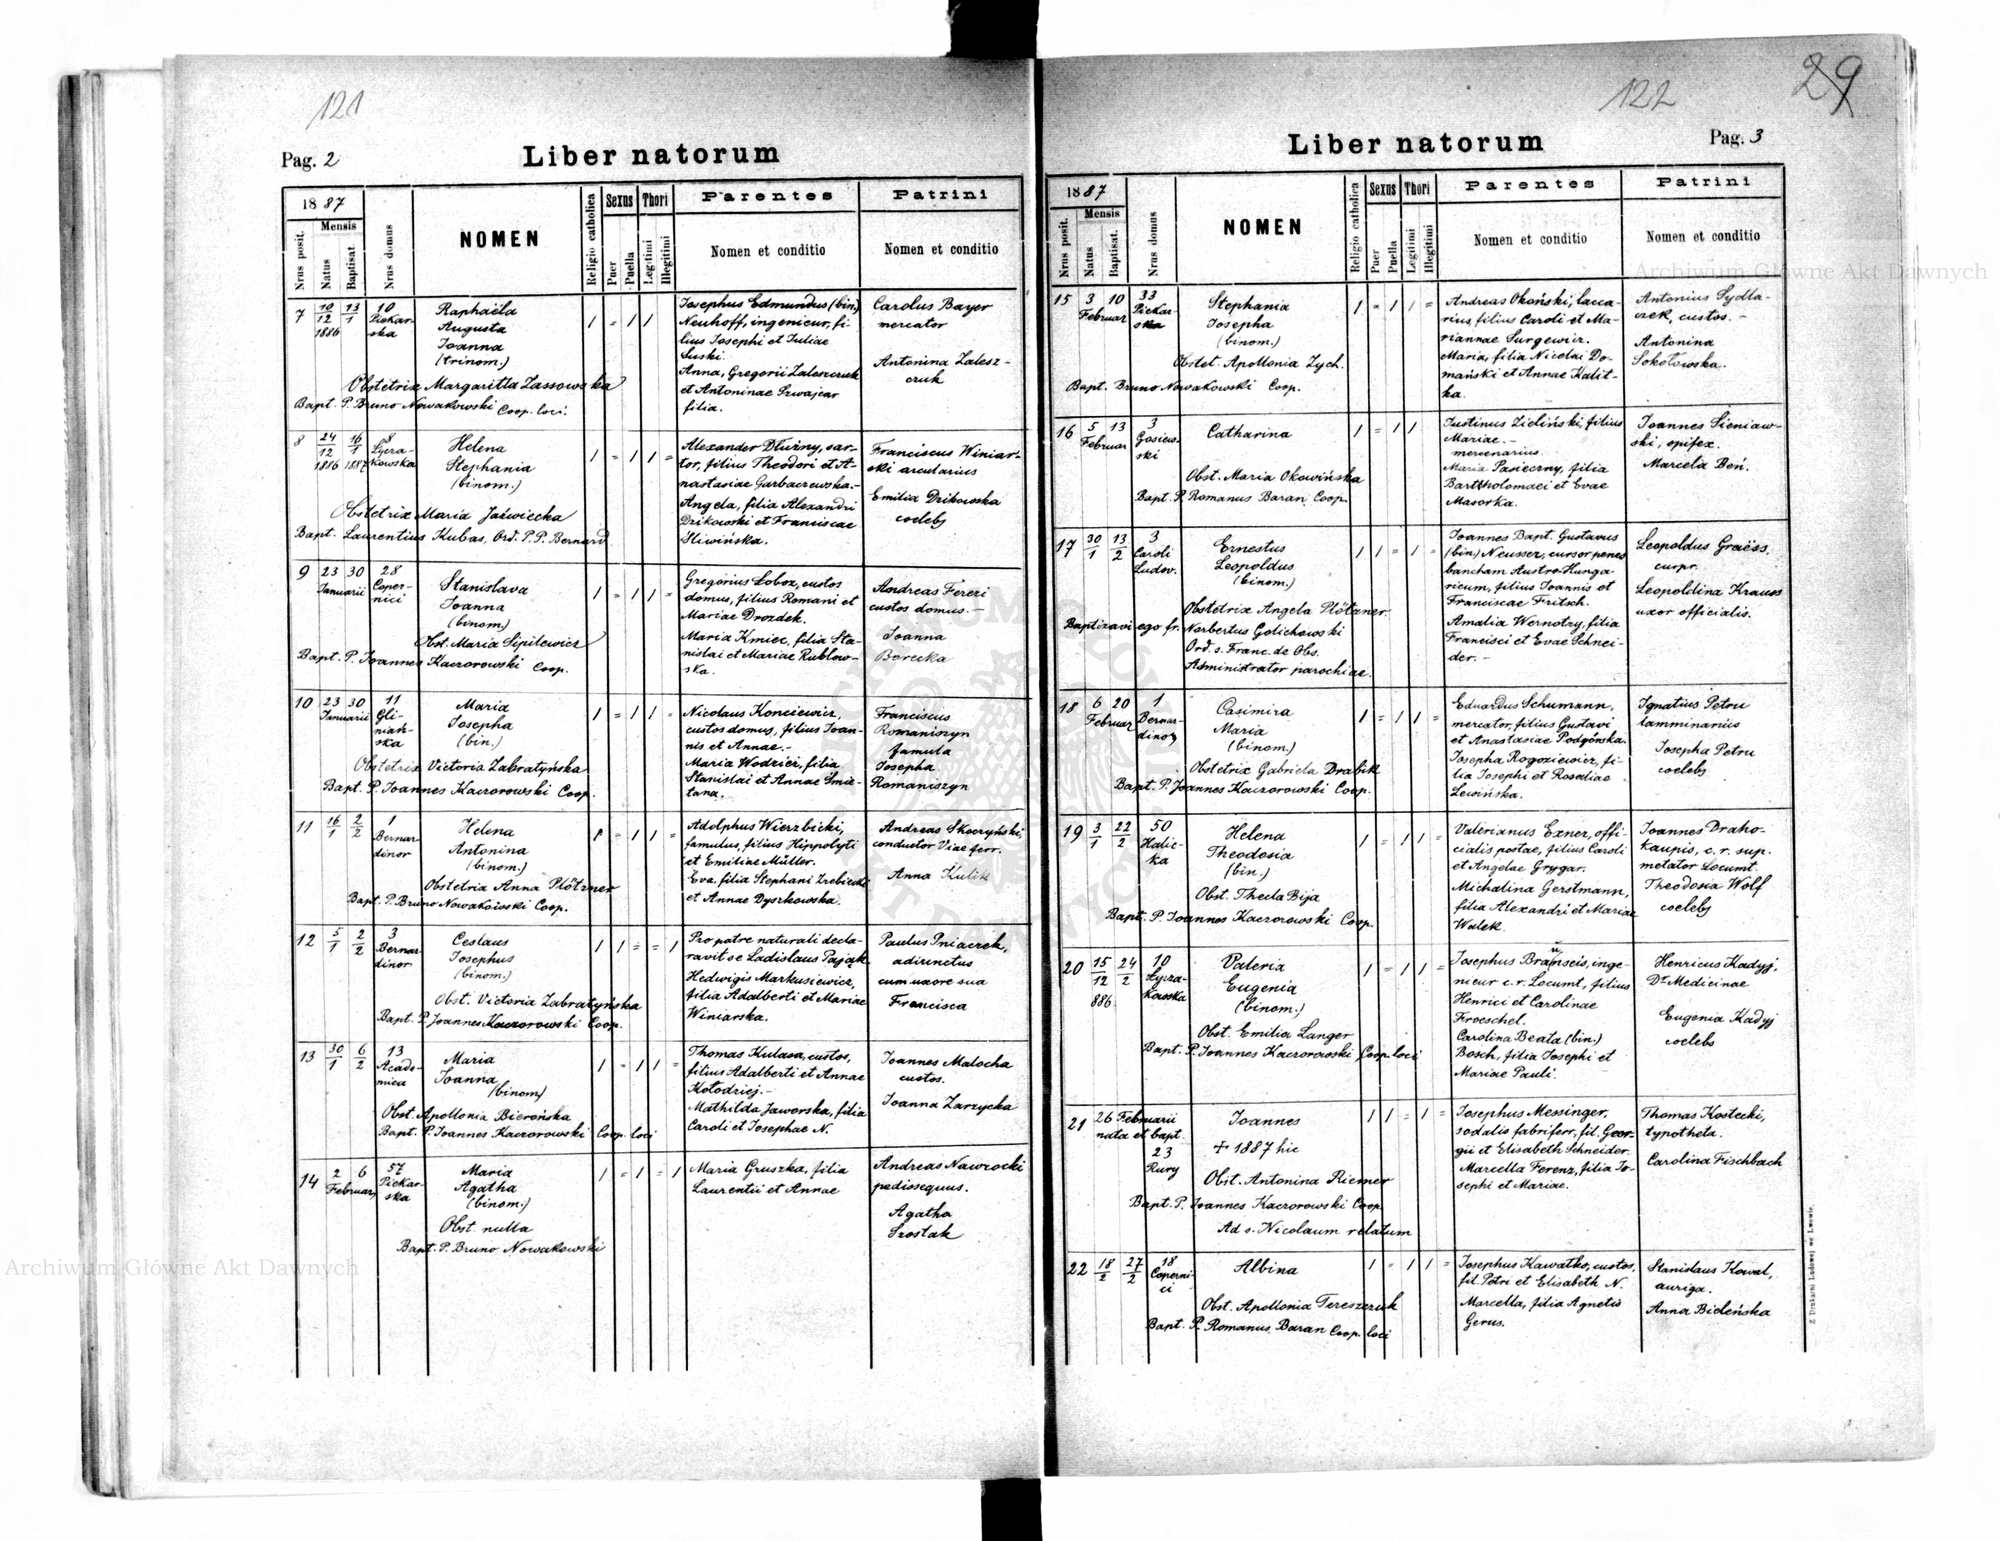 121
Pag. 2
Liber natorum
1887
Mensis
Nrus posit.
Natus
Baptisat.
Nrus domus
NOMEN
Religio catholica
Sexus
Puer
Puella
Thori
Legitimi
Illegitimi
Parentes
Nomen et conditio
Patrini
Nomen et conditio
7
10/12 1886
13/1
10
Piekar-
ska
Raphaëla
Augusta
Joanna
(trinom.)
Obstetrix Margaritta Zassowska
Bapt. P. Bruno Nowakowski Coop. loci.
Josephus Edmundus (bin)
Neuhoff, ingenieur, fi-
lius Josephi et Juliae
Suski.
Anna, Gregorii Zaleszczuk
et Antoninae Szwajcar
filia.
Carolus Bayer
mercator
Antonina Zalesz-
czuk
8
24/12 1886
16/1 1887
8
Łycza-
kowska
Helena
Stephania
(binom.)
Obstetrix Maria Jaźwiecka
Bapt. Laurentius Kubas, Ord. P.P. Bernard.
Alexander Dłużny, sar-
tor, filius Theodori et A-
nastasiae Garbaczewska.-
Angela, filia Alexandri
Dzikowski et Franciscae
Śliwińska.
Franciscus Winiar-
ski arcularius
Emilia Dzikowska
coelebs
9
23 30
Januarii
28
Coper-
nici
Stanislava
Joanna
(binom.)
Obst. Maria Sipilewicz
Bapt. P. Joannes Kaczorowski Coop.
Gregorius Łoboz, custos
domus, filius Romani et
Mariae Drozdek.
Maria Kmiec, filia Sta-
nislai et Mariae Rublow-
ska.
Andreas Ferezi
custos domus. -
Joanna
Borecka
10
23 30
Januarii
11
Gli-
niań-
ska
Maria
Josepha
(bin.)
Obstetrix Victoria Zabratyńska
Bapt. P. Joannes Kaczorowski Coop.
Nicolaus Konciewicz,
custos domus, filius Joan-
nis et Annae.-
Maria Wodzicz, filia
Stanislai et Annae Smie-
tana.
Franciscus
Romaniszyn
famula
Josepha
Romaniszyn
11
16/1
2/2
1
Bernar-
dinor
Helena
Antonina
(binom.)
Obstetrix Anna Plötzner
Bapt. P. Bruno Nowakowski Coop.
Adolphus Wierzbicki,
famulus, filius Hippolyti
et Emiliae Müller.
Eva, filia Stephani Zrebiecki
et Annae Dyszkowska.
Andreas Skoczyński,
conductor Viae ferr.
Anna Kulik
12
5/1
2/2
3
Bernar-
dinor
Ceslaus
Josephus
(binom.)
Obst. Victoria Zabratyńska
Bapt. P. Joannes Kaczorowski Coop.
Pro patre naturali decla-
ravit se Ladislaus Pająk.
Hedwigis Markusiewicz,
filia Adalberti et Mariae
Winiarska.
Paulus Pniaczek,
adiunctus
cum uxore sua
Francisca
13
30/1
6/2
13
Acade-
mica
Maria
Joanna
(binom)
Obst. Apollonia Bierońska
Bapt. P. Joannes Kaczorowski Coop. loci
Thomas Kulasa, custos,
filius Adalberti et Annae
Kołodziej.-
Mathilda Jaworska, filia
Caroli et Josephae N.
Joannes Matocha
custos.
Joanna Zarzycka
14
2 6
Februar.
57
Piekar-
ska
Maria
Agatha
(binom.)
Obst. nulla
Bapt. P. Bruno Nowakowski
Maria Gruszka, filia
Laurentii et Annae
Andreas Nawrocki
pedissequus.
Agatha
Szostak
122
29
Liber natorum
Pag. 3
1887
Mensis
Nrus posit.
Natus
Baptisat.
Nrus domus
NOMEN
Religio catholica
Sexus
Puer
Puella
Thori
Legitimi
Illegitimi
Parentes
Nomen et conditio
Patrini
Nomen et conditio
15
3 10
Februar
33
Piekar-
ska
Stephania
Josepha
(binom.)
Obstet. Apollonia Zych.
Bapt. Bruno Nowakowski Coop.
Andreas Okoński, lacca-
rius, filius Caroli et Ma-
riannae Surgewicz.
Maria, filia Nicolai Do-
mański et Annae Kalit-
ka.
Antonius Sydla-
czek, custos. -
Antonina
Sokołowska.
16
5 13
Februar
3
Gosiew-
ski
Catharina
Obst. Maria Okowińska
Bapt. P. Romanus Baran Coop.
Justinus Zieliński, filius
Mariae. -
mercenarius.
Maria Pasieczny, filia
Bartholomaei et Evae
Masorka.
Joannes Sieniaw-
ski, opifex.
Marcela Deń.
17
30/1
13/2
3
Caroli
Ludov.
Ernestus
Leopoldus
(binom.)
Obstetrix Angela Plötzner
Baptizavi ego fr. Norbertus Golichowski
Ord. s. Franc. de Obs.
Administrator parochiae.
Joannes Bapt. Gustavus
(bin) Neusser, cursor penes
bancham Austro-Hunga-
ricum, filius Joannis et
Franciscae Fritsch.
Amalia Wernotzy, filia
Francisci et Evae Schnei-
der. -
Leopoldus Graëss.
curpr.
Leopoldina Krauss
uxor officialis.
18
6 20
Februar
1
Bernar-
dinor
Casimira
Maria
(binom.)
Obstetrix Gabriela Drabik
Bapt. P. Joannes Kaczorowski Coop.
Eduardus Schumann,
mercator, filius Gustavi
et Anastasiae Podgórska.
Josepha Rogoziewicz, fi-
lia Josephi et Rosaliae
Lewińska.
Ignatius Petru
lamminarius
Josepha Petru
coelebs
19
3/1
22/2
50
Halic-
ka
Helena
Theodosia
(bin.)
Obst. Thecla Bija
Bapt. P. Joannes Kaczorowski Coop.
Valerianus Exner, offi-
cialis postae, filius Caroli
et Angelae Grygar.
Michalina Gerstmann,
filia Alexandri et Mariae
Walek.
Joannes Draho-
kaupis, c. r. sup.
metator Locumt.
Theodosia Wolf
coelebs
20
15/12 886
24/2
10
Łycza-
kowska
Valeria
Eugenia
(binom.)
Obst. Emilia Langer
Bapt. P. Joannes Kaczorowski Coop. loci
Josephus Braunseis, inge-
nieur c. r. Locumt, filius
Henrici et Carolinae
Froeschel.
Carolina Beata (bin.)
Bosch, filia Josephi et
Mariae Pauli.
Henricus Kadyj,
Dr Medicinae
Eugenia Kadyj
coelebs
21
26 Februarii
nata et bapt.
23
Rury
Joannes
+ 1887 hic
Obst. Antonina Riemer
Bapt. P. Joannes Kaczorowski Coop.
Ad s. Nicolaum relatum
Josephus Messinger,
sodalis fabriferr, fil. Geor-
gii et Elisabeth Schneider.
Marcella Ferenz, filia Jo-
sephi et Mariae.
Thomas Kostecki,
typotheta.
Carolina Fischbach
22
18/2
27/2
18
Coperni-
ci
Albina
Obst. Apollonia Tereszczuk
Bapt. P. Romanus Baran Coop. loci
Josephus Kawałko, custos,
fil. Petri et Elisabeth N.
Marcella, filia Agnetis
Gerus.
Stanislaus Kowal,
auriga.
Anna Bieleńska
Z Drukarni Ludowej we Lwowie.
Archiwum Główne Akt Dawnych
Archiwum Główne Akt Dawnych